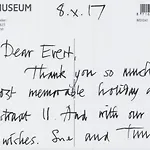 MUSEUM
8.x.17
Dear Evert,
Thank you so much
most memorable holiday a
And with our
wishes. Sue and Tim